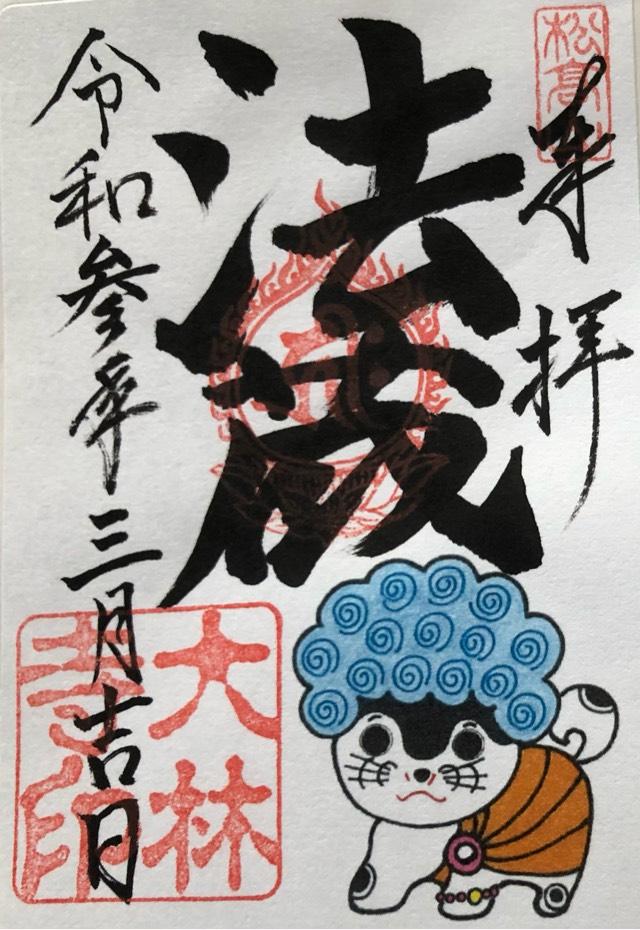 松高山
奉拝
法蔵
令和参年三月吉日
大林
寺印